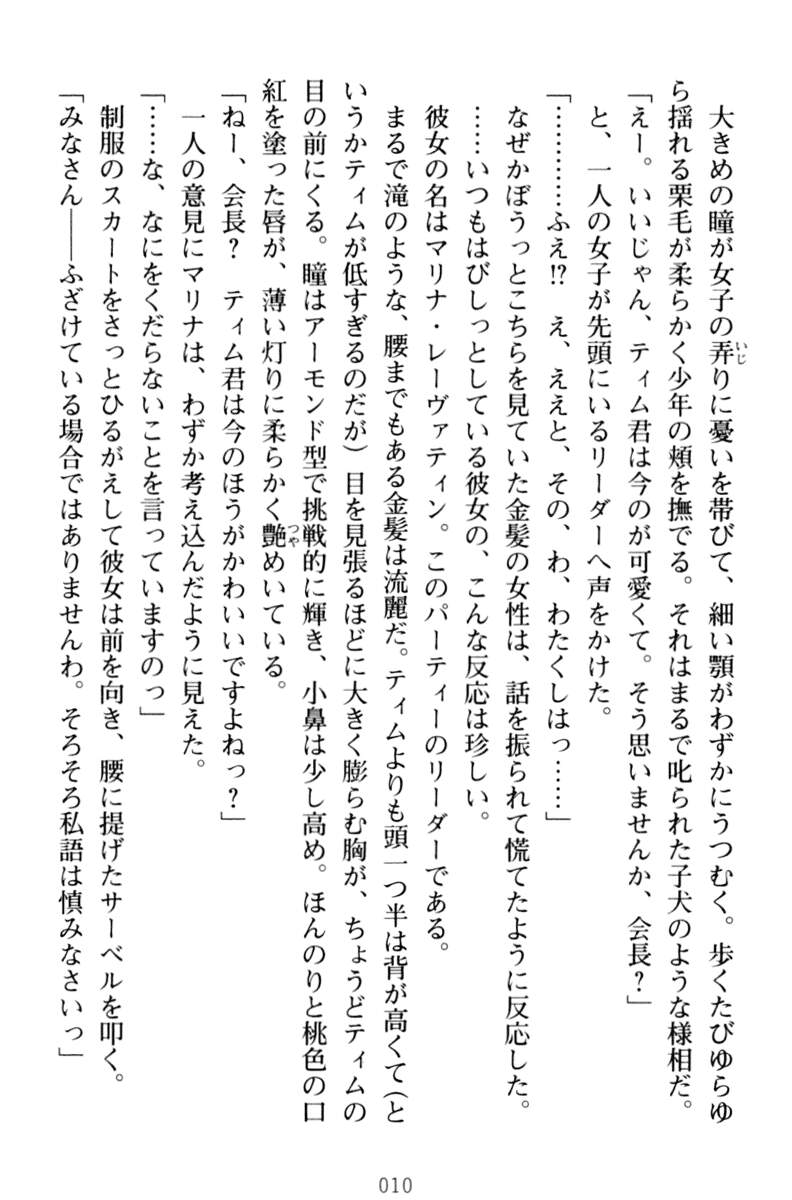 大きめの瞳が女子の弄りに憂いを帯びて、細い顎がわずかにうつむく。歩くたびゆらゆ
ら揺れる栗毛が柔らかく少年の頬を撫でる。それはまるで叱られた子犬のような様相だ。
「えー。いいじゃん、ティム君は今のが可愛くて。そう思いませんか、会長？」
と、一人の女子が先頭にいるリーダーへ声をかけた。
「…………ふえ!?　え、ええと、その、わ、わたくしはっ……」
なぜかぼうっとこちらを見ていた金髪の女性は、話を振られて慌てたように反応した。
……いつもはびしっとしている彼女の、こんな反応は珍しい。
彼女の名はマリナ・レーヴァティン。このパーティーのリーダーである。
まるで滝のような、腰までもある金髪は流麗だ。ティムよりも頭一つ半は背が高くて（と
いうかティムが低すぎるのだが）目を見張るほどに大きく膨らむ胸が、ちょうどティムの
目の前にくる。瞳はアーモンド型で挑戦的に輝き、小鼻は少し高め。ほんのりと桃色の口
紅を塗った唇が、薄い灯りに柔らかく艶めいている。
「ねー、会長？　ティム君は今のほうがかわいいですよねっ？」
一人の意見にマリナは、わずか考え込んだように見えた。
「……な、なにをくだらないことを言っていますのっ」
制服のスカートをさっとひるがえして彼女は前を向き、腰に提げたサーベルを叩く。
「みなさん――ふざけている場合ではありませんわ。そろそろ私語は慎みなさいっ」
いじ
つや
010